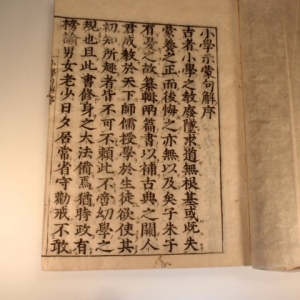 小學示蒙句解序
古者小學之敎廢墜求道無根基或既失
豪養之正而後悔之亦無以及矣子朱子
有憂之故纂輯兩篇書以補古典之闕人
君敎於天下師儒授學於生徒欲使其
初知所趣者皆不可不頼此不啻幼學之
規也且此書修身之大法備焉猶時政有
榜諭男女老少日夕居常省守勸戒不敢